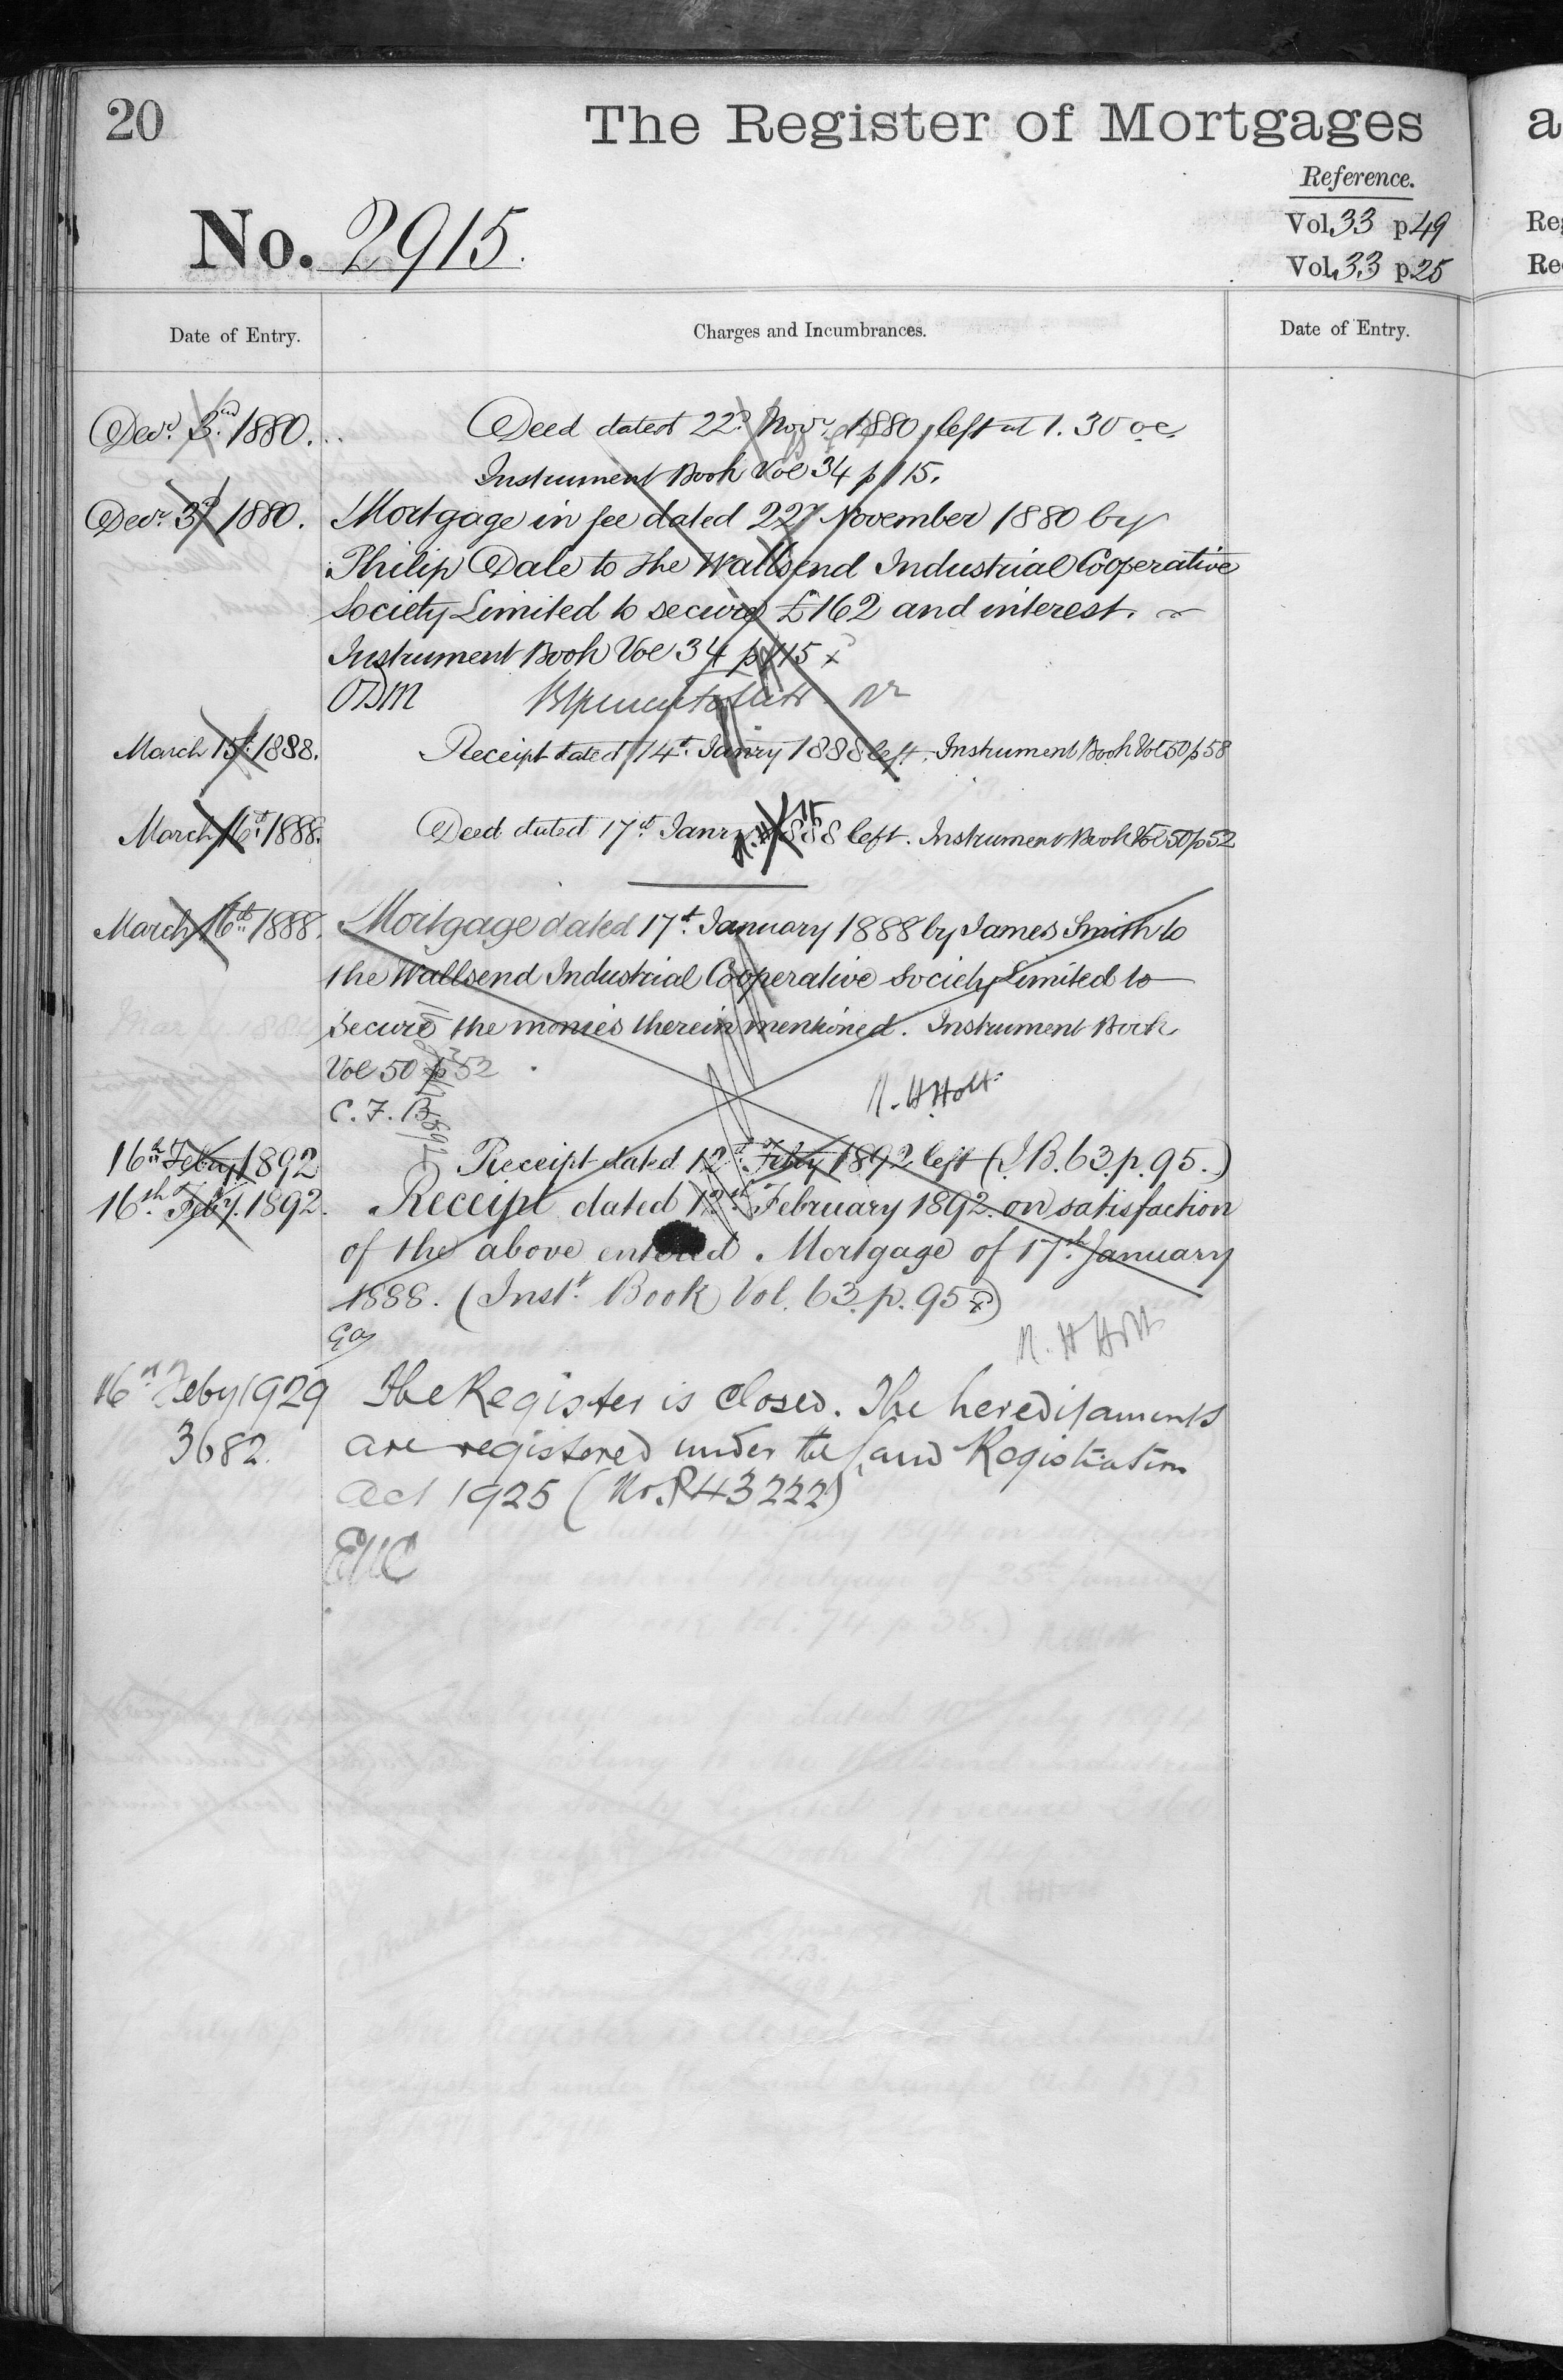 20
The Register of Mortgages
Reference.
No. 2915.
Vol. 33 p 49
Vol. 33 p. 25
Date of Entry.
Charges and Incumbrances.
Date of Entry.
Decr. 3rd 1880.
Deed dated 22d Novr. 1880, left at 1.30 oc.
Instrument Book Vol 34 p 115.
Decr. 3d 1880.
Mortgage in fee dated 22d November 1880 by
Philip Dale to the Wallsend Industrial Cooperative
Society Limited to secure £162 and interest.
Instrument Book Vol 34 p 115
March 15th 1888.
Receipt dated 14th Janry 1888 left. Instrument Book Vol 50 p 58
March 16th 1888.
Deed dated 17th Janry 1888 left. Instrument Book Vol 50 p 52
March 16th 1888.
Mortgage dated 17th January 1888 by James Smith to
the Wallsend Industrial Cooperative Society Limited to
secure the monies therein mentioned. Instrument Book
Vol 50 p 52
R. H. Holt
C. F. B
16th Feby 1892
Receipt dated 12th Feby 1892 left (I.B. 63. p. 95.)
16th Feby. 1892.
Receipt dated 12th February 1892 on satisfaction
of the above entered Mortgage of 17th January
1888. (Inst. Book Vol. 63. p. 95)
R. H Holt
16th Feby 1929
3682.
The Register is closed. The hereditaments
are registered under the Land Registration
Act 1925 (No. P43222)
a
Re
Re